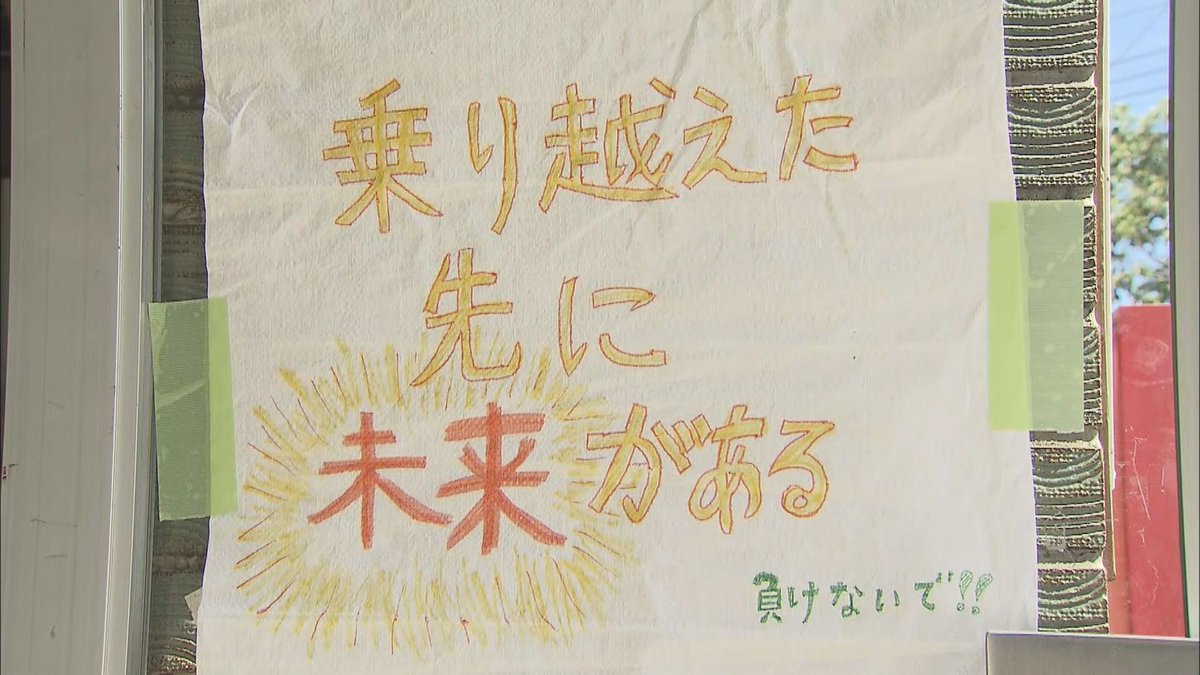 乗り越えた
先に
未来がある
負けないで!!